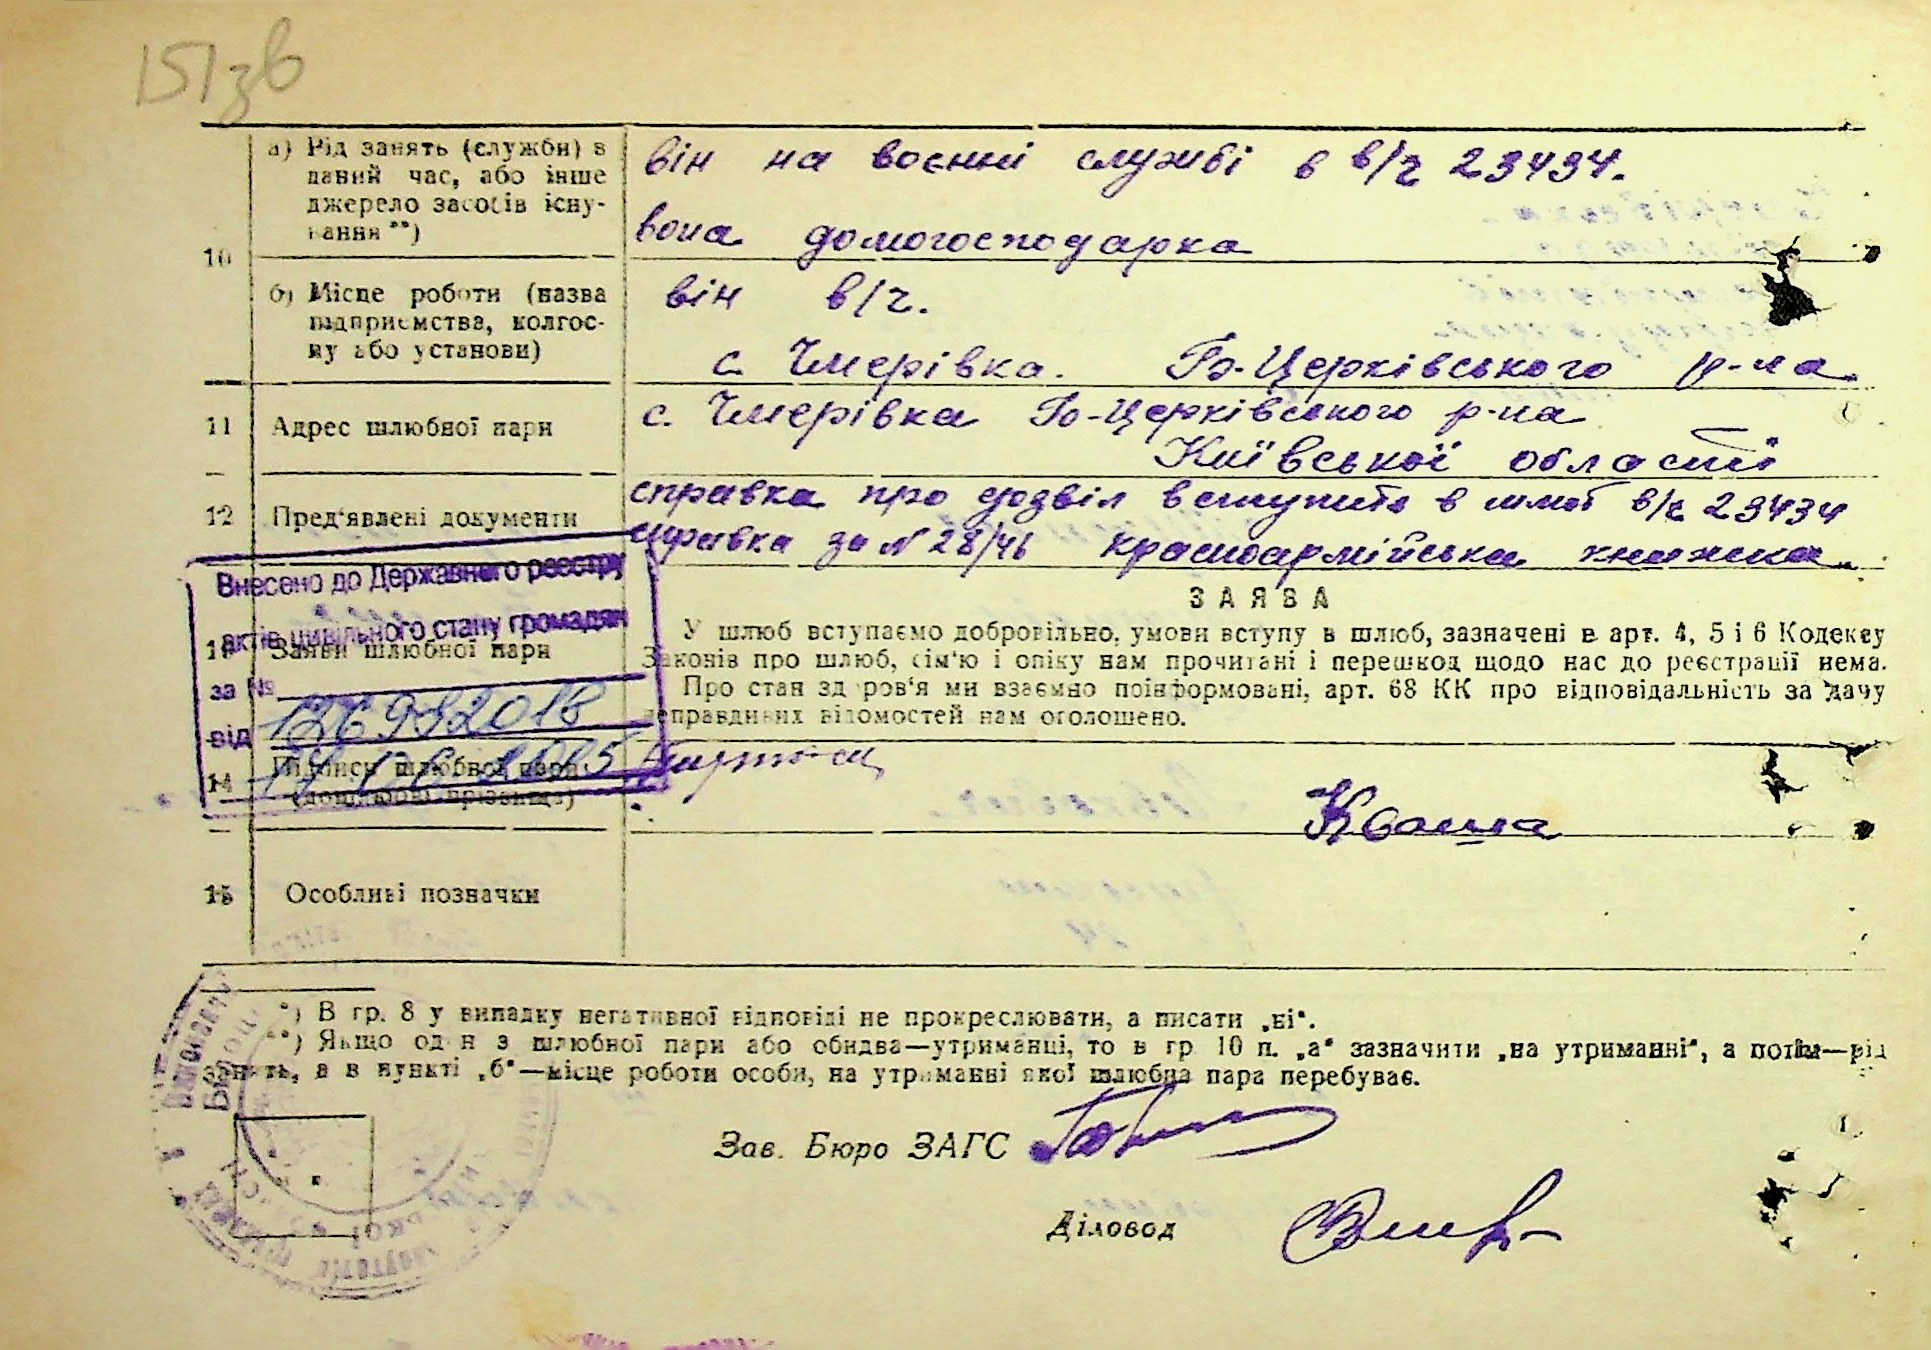 151зв
10
а) Рід занять (служби) в
даний час, або інше
джерело засобів існу-
вання **)
він на воєнні службі в в/ч 23434.
вона домогосподарка
б) Місце роботи (назва
підприємства, колгос-
пу або установи)
він в/ч.
с. Чмерівка. Б-Церківського р-на
11 Адрес шлюбної пари
с. Чмерівка Б-Церківського р-на
Київської області
12 Пред'явлені документи
справка про дозвіл вступити в шлюб в/ч 23434
справка за № 28/46 красноармійська книжка
Внесено до Державного реєстру
актів цивільного стану громадян
за №
від
13 Заяви шлюбної пари
ЗАЯВА
У шлюб вступаємо добровільно, умови вступу в шлюб, зазначені в арт. 4, 5 і 6 Кодексу
Законів про шлюб, сім'ю і опіку нам прочитані і перешкод щодо нас до реєстрації нема.
Про стан здоров'я ми взаємно поінформовані, арт. 68 КК про відповідальність за дачу
неправдивих відомостей нам оголошено.
14 Підписи шлюбної пари
(дошлюбні прізвища)
Кваша
15 Особливі позначки
*) В гр. 8 у випадку негативної відповіді не прокреслювати, а писати „ні“.
**) Якщо один з шлюбної пари або обидва—утриманці, то в гр 10 п. „а“ зазначити „на утриманні“, а потім—рід
занять, а в пункті „б“—місце роботи особи, на утриманні якої шлюбна пара перебуває.
Зав. Бюро ЗАГС
Діловод